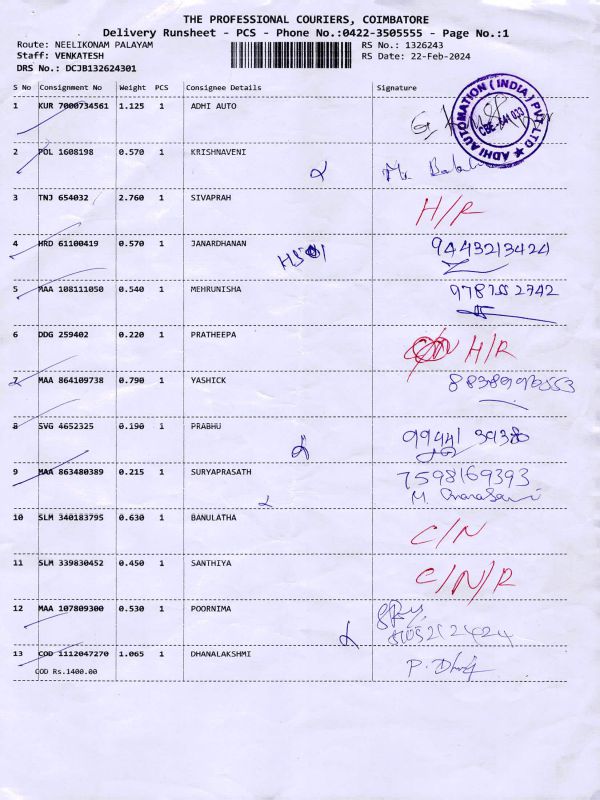 THE PROFESSIONAL COURIERS, COIMBATORE
Delivery Runsheet - PCS - Phone No.:0422-3505555 - Page No.:1
Route: NEELIKONAM PALAYAM
Staff: VENKATESH
DRS No.: DCJB132624301
RS No.: 1326243
RS Date: 22-Feb-2024
S No Consignment No Weight PCS Consignee Details Signature
1 KUR 7000734561 1.125 1 ADHI AUTO
ADHI AUTOMATION (INDIA) PVT LTD ★
CBE-641 033
2 POL 1608198 0.570 1 KRISHNAVENI
3 TNJ 654032 2.760 1 SIVAPRAH H/R
4 HRD 61100419 0.570 1 JANARDHANAN 9443213424
5 MAA 108111050 0.540 1 MEHRUNISHA
6 DDG 259402 0.220 1 PRATHEEPA H/R
7 MAA 864109738 0.790 1 YASHICK
8 SVG 4652325 0.190 1 PRABHU
9 MAA 863480389 0.215 1 SURYAPRASATH 7598169393
10 SLM 340183795 0.630 1 BANULATHA C/N
11 SLM 339830452 0.450 1 SANTHIYA C/N/R
12 MAA 107809300 0.530 1 POORNIMA
13 COD 1112047270 1.065 1 DHANALAKSHMI
COD Rs.1400.00